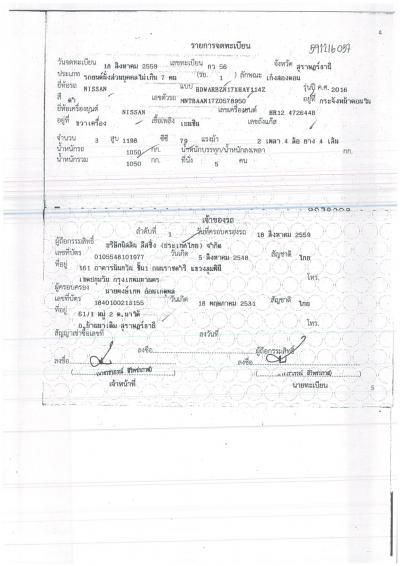 4
รายการจดทะเบียน
วันจดทะเบียน 18 สิงหาคม 2559 เลขทะเบียน กว 56 จังหวัด สุราษฎร์ธานี
ประเภท รถยนต์นั่งส่วนบุคคลไม่เกิน 7 คน (รย. 1 ) ลักษณะ เก๋งสองตอน
ยี่ห้อรถ NISSAN แบบ รุ่นปี ค.ศ. 2016
สี ดำ เลขตัวรถ อยู่ที่
ยี่ห้อเครื่องยนต์ NISSAN เลขเครื่องยนต์ HR12 472644B
อยู่ที่ ขวาเครื่อง เชื้อเพลิง เบนซิน เลขถังแก๊ส
จำนวน 3 สูบ 1198 ซีซี 79 แรงม้า 2 เพลา 4 ล้อ ยาง 4 เส้น
น้ำหนักรถ 1050 กก. น้ำหนักบรรทุก/น้ำหนักลงเพลา กก.
น้ำหนักรวม 1050 กก. ที่นั่ง 5 คน
เจ้าของรถ
ลำดับที่ 1 วันที่ครอบครองรถ 18 สิงหาคม 2559
ผู้ถือกรรมสิทธิ์ บริษัทนิสสัน ลีสซิ่ง (ประเทศไทย) จำกัด
เลขที่บัตร 0105548101977 วันเกิด 5 สิงหาคม 2548 สัญชาติ ไทย
ที่อยู่ 161 ชั้น1 ถนนราชดำริ แขวงลุมพินี
เขตปทุมวัน กรุงเทพมหานคร โทร.
ผู้ครอบครอง
เลขที่บัตร 1840100213155 วันเกิด 18 พฤษภาคม 2531 สัญชาติ ไทย
ที่อยู่ 61/1 หมู่ 2 ต.นาใต้
อ.บ้านนาเดิม สุราษฎร์ธานี โทร.
สัญญาเช่าซื้อเลขที่ ลงวันที่
ลงชื่อ ผู้ถือกรรมสิทธิ์
ลงชื่อ ลงชื่อ
เจ้าหน้าที่ นายทะเบียน
5